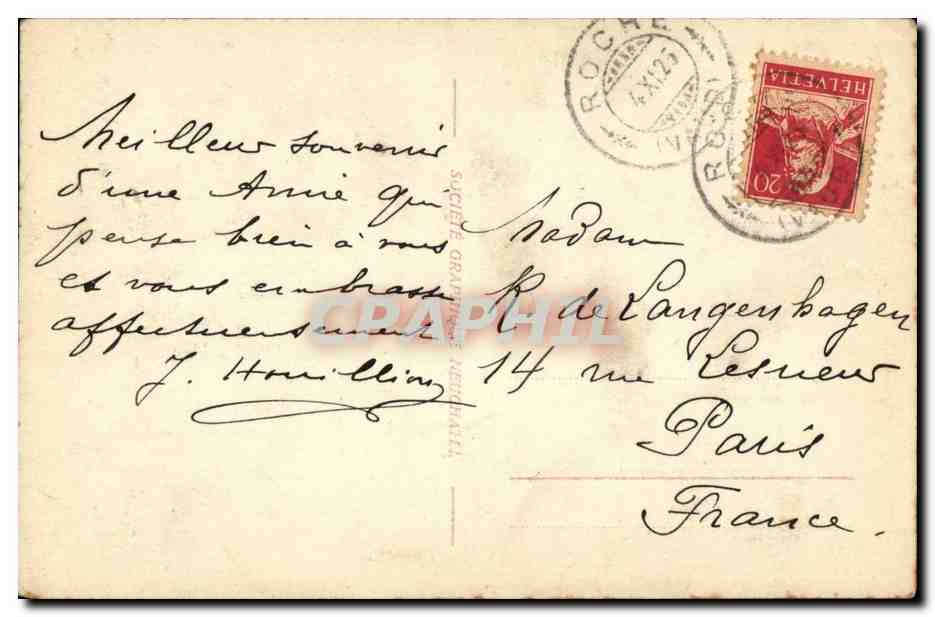 Meilleur souvenir
d'une Amie qui
pense bien à vous
et vous embrasse
affectueusement
J. Houillion
SOCIÉTÉ GRAPHIQUE NEUCHATEL
Madame
R. de Langenhagen
14 rue Lesueur
Paris
France.
ROCHE
4.XI.25
(VAUD)
ROCHE
(VAUD)
HELVETIA
20
CPARPHIL